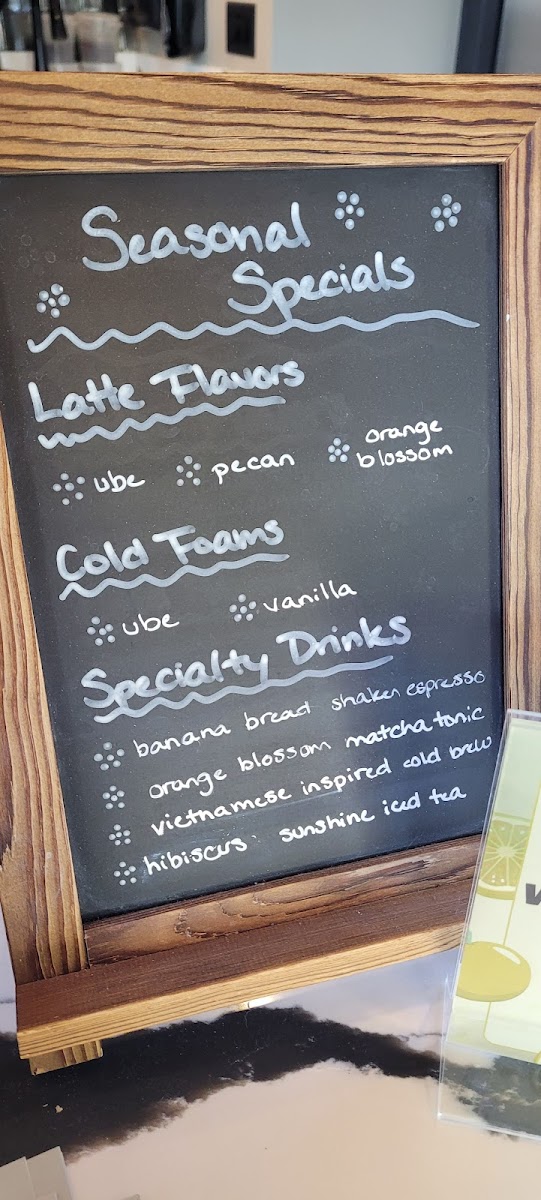 Seasonal
Specials
Latte Flavors
ube pecan orange
blossom
Cold Foams
ube vanilla
Specialty Drinks
banana bread shaken espresso
orange blossom matcha tonic
vietnamese inspired cold brew
hibiscus sunshine iced tea